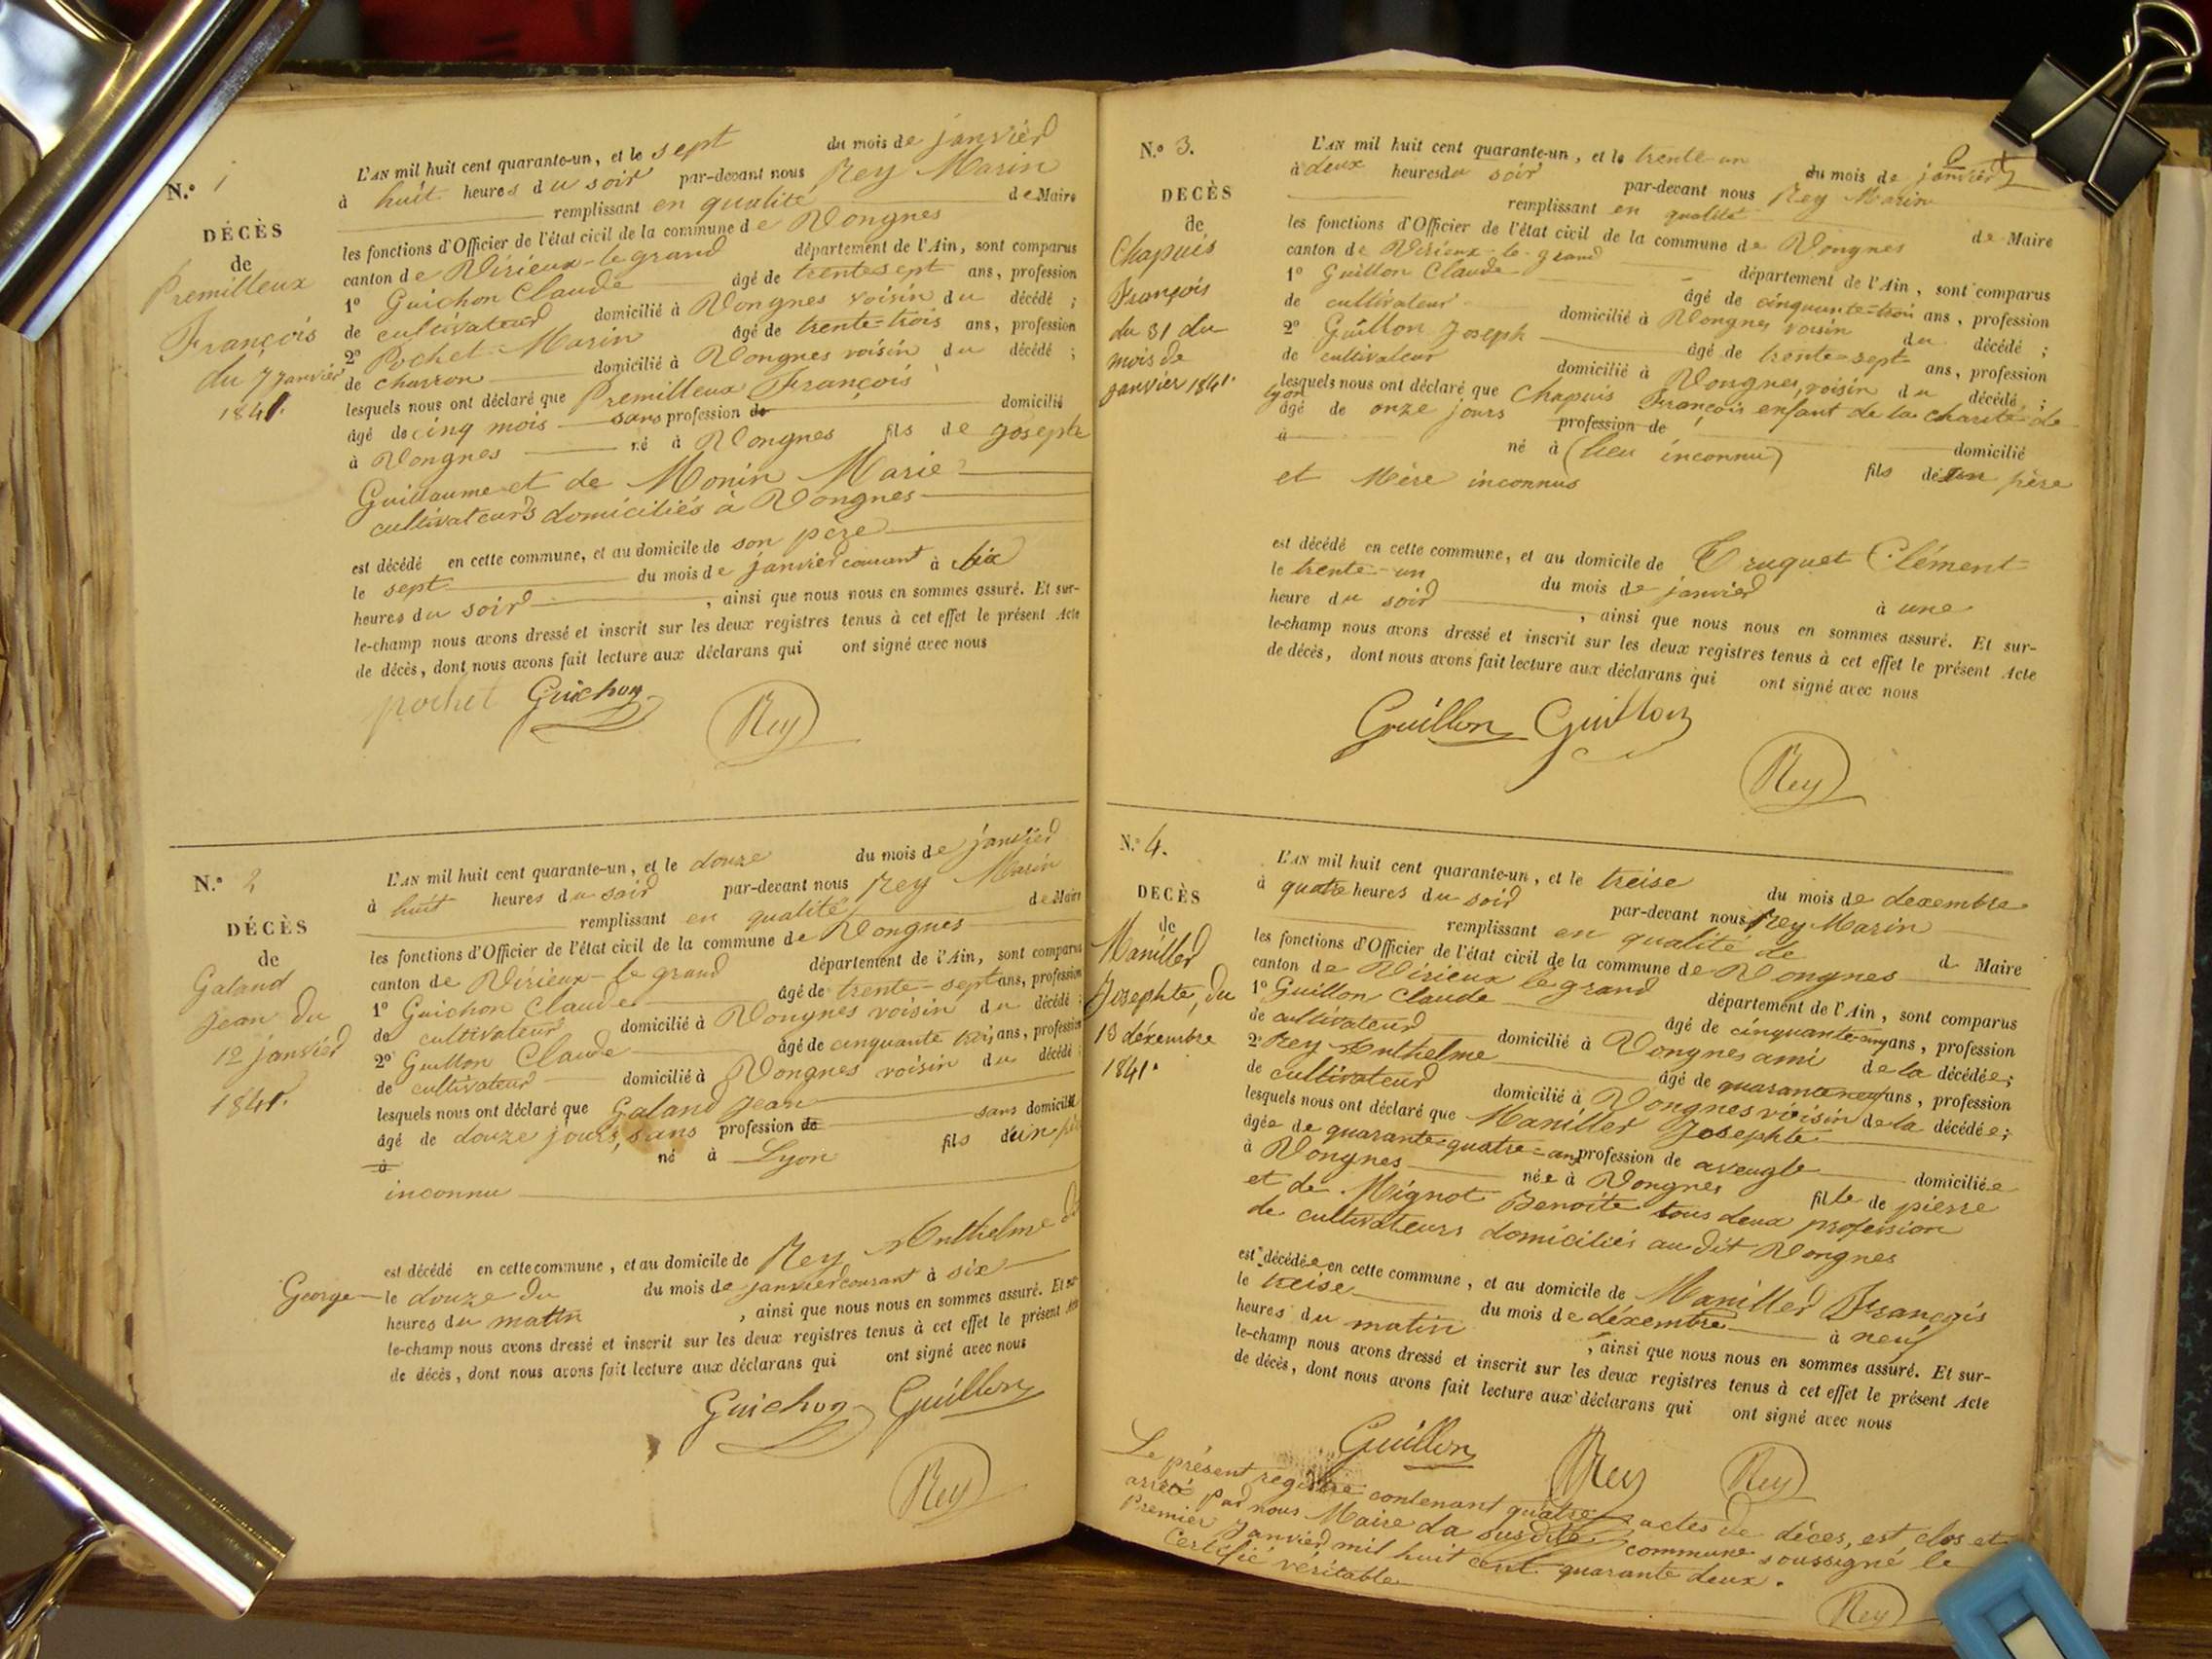 N.º 1
DÉCÈS
de
Premilleux
François
du 7 Janvier
1841.
L'AN mil huit cent quarante-un, et le sept du mois de janvier
à huit heures du soir par-devant nous Rey Marin
remplissant en qualité de Maire
les fonctions d'Officier de l'état civil de la commune de Vongnes
canton de Virieux-le grand département de l'Ain, sont comparus
1º Guichon Claude âgé de trente sept ans, profession
de cultivateur domicilié à Vongnes voisin du décédé ;
2º Pochet Marin âgé de trente-trois ans, profession
de charron domicilié à Vongnes voisin du décédé ;
lesquels nous ont déclaré que Premilleux François
âgé de cinq mois sans profession de domicilié
à Vongnes né à Vongnes fils de joseph
Guillaume et de Monin Marie
cultivateurs domiciliés à Vongnes
est décédé en cette commune, et au domicile de son père
le sept du mois de janvier courant à six
heures du soir , ainsi que nous nous en sommes assuré. Et sur-
le-champ nous avons dressé et inscrit sur les deux registres tenus à cet effet le présent Acte
de décès, dont nous avons fait lecture aux déclarans qui ont signé avec nous
pochet Guichon Rey
N.º 2
DÉCÈS
de
Galand
Jean du
12 janvier
1841.
L'AN mil huit cent quarante-un, et le douze du mois de janvier
à huit heures du soir par-devant nous Rey Marin
remplissant en qualité de Maire
les fonctions d'Officier de l'état civil de la commune de Vongnes
canton de Virieux-le grand département de l'Ain, sont comparus
1º Guichon Claude âgé de trente-sept ans, profession
de cultivateur domicilié à Vongnes voisin du décédé ;
2º Guillon Claude âgé de cinquante trois ans, profession
de cultivateur domicilié à Vongnes voisin du décédé
lesquels nous ont déclaré que Galand Jean
âgé de douze jours, sans profession de sans domicilié
à né à Lyon fils d'un père
inconnu
est décédé en cette commune, et au domicile de Rey Anthelme de
George le douze du du mois de janvier courant à six
heures du matin , ainsi que nous nous en sommes assuré. Et sur
le-champ nous avons dressé et inscrit sur les deux registres tenus à cet effet le présent Acte
de décès, dont nous avons fait lecture aux déclarans qui ont signé avec nous
Guichon Guillon
Rey
2
N.º 3.
DECÈS
de
Chapuis
François
du 31 du
mois de
janvier 1841.
L'AN mil huit cent quarante-un, et le trente-un du mois de janvier
à deux heures du soir par-devant nous Rey Marin
remplissant en qualité de Maire
les fonctions d'Officier de l'état civil de la commune de Vongnes
canton de Virieux-le-grand département de l'Ain, sont comparus
1º Guillon Claude âgé de cinquante-trois ans, profession
de cultivateur domicilié à Vongnes voisin du décédé ;
2º Guillon Joseph âgé de trente-sept ans, profession
de cultivateur domicilié à Vongnes, voisin du décédé ;
lesquels nous ont déclaré que Chapuis François enfant de la charité de
lyon
âgé de onze jours profession de domicilié
à né à (lieu inconnu) fils de un père
et Mère inconnus
est décédé en cette commune, et au domicile de Truquet Clément
le trente-un du mois de janvier à une
heure du soir , ainsi que nous nous en sommes assuré. Et sur-
le-champ nous avons dressé et inscrit sur les deux registres tenus à cet effet le présent Acte
de décès, dont nous avons fait lecture aux déclarans qui ont signé avec nous
Guillon Guillon
Rey
N.º 4.
DECÈS
de
Maniller
Josephte, du
13 décembre
1841.
L'AN mil huit cent quarante-un, et le treise du mois de dexembre
à quatre heures du soir par-devant nous Rey Marin
remplissant en qualité de d Maire
les fonctions d'Officier de l'état civil de la commune de Vongnes
canton de Virieux le grand département de l'Ain, sont comparus
1º Guillon Claude âgé de ans, profession
de cultivateur domicilié à Vongnes ami de la décédée ;
2º Rey Anthelme âgé de quarante neuf ans, profession
de cultivateur domicilié à Vongnes voisin de la décédée ;
lesquels nous ont déclaré que Maniller Josephte
âgée de quarante-quatre-ans profession de aveugle domiciliée
à Vongnes née à Vongnes fille de pierre
et de Mignot Benoite tous deux profession
de cultivateurs domiciliés au dit Vongnes
est décédée en cette commune, et au domicile de Maniller François
le treise du mois de dexembre à neuf
heures du matin , ainsi que nous nous en sommes assuré. Et sur-
le-champ nous avons dressé et inscrit sur les deux registres tenus à cet effet le présent Acte
de décès, dont nous avons fait lecture aux déclarans qui ont signé avec nous
Guillon Rey Rey
Le présent registre contenant quatre actes de décès, est clos et
arreté par nous Maire da susdite commune soussigné le
Premier Janvier mil huit cent quarante deux.
Certifié véritable
Rey